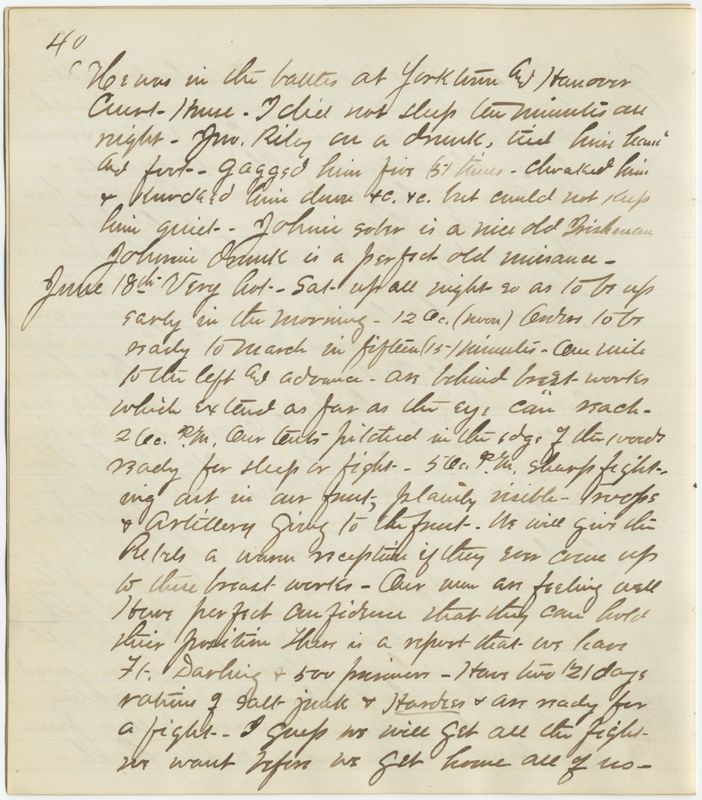 40
He was in the battles at Yorktown and Hanover
Court-House - I did not sleep ten minutes all
night - Jno. Riley on a drunk, tied him hand
and foot - gagged him five (5) times - choaked him
& knocked him down &c. &c. but could not keep
him quiet - Johnie sober is a nice old Irishman
Johnnie drunk is a perfect old nuisance -
June 18th Very hot - Sat up all night so as to be up
early in the morning - 12 Oc. (noon) Orders to be
ready to march in fifteen (15) minutes - One mile
to the left and advance - are behind breast-works
which extend as far as the eye can reach -
2 Oc. P.M. Our tents pitched in the edge of the woods
ready for sleep or fight - 5 Oc. P.M. sharp fight-
ing out in our front, plainly visible - Troops
& Artillery going to the front. We will give the
Rebels a warm reception if they ever come up
to these breast works - Our men are feeling well
Have perfect confidence that they can hold
their position There is a report that we have
Ft. Darling & 500 prisoners - Have two (2) days
rations of salt junk & Hardees & are ready for
a fight - I guess we will get all the fight
we want before we get home all of us -